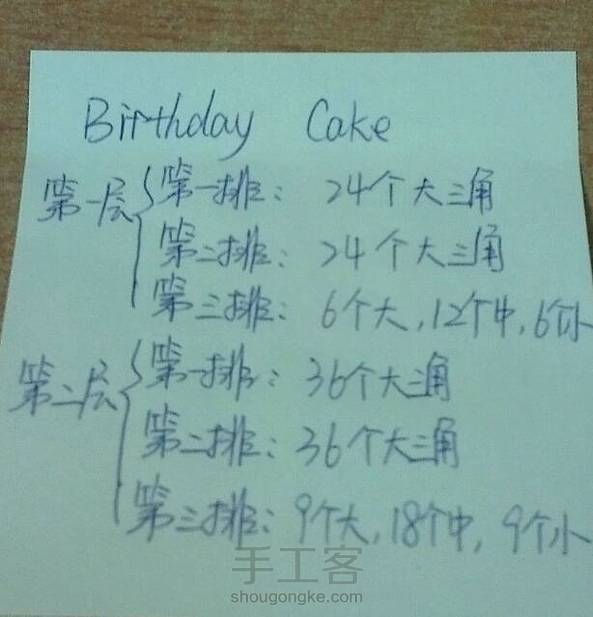 Birthday Cake
第一层 第一排: 24个大三角
第二排: 24个大三角
第三排: 6个大,12个中,6个小
第二层 第一排: 36个大三角
第二排: 36个大三角
第三排: 9个大,18个中,9个小
手工客
shougongke.com